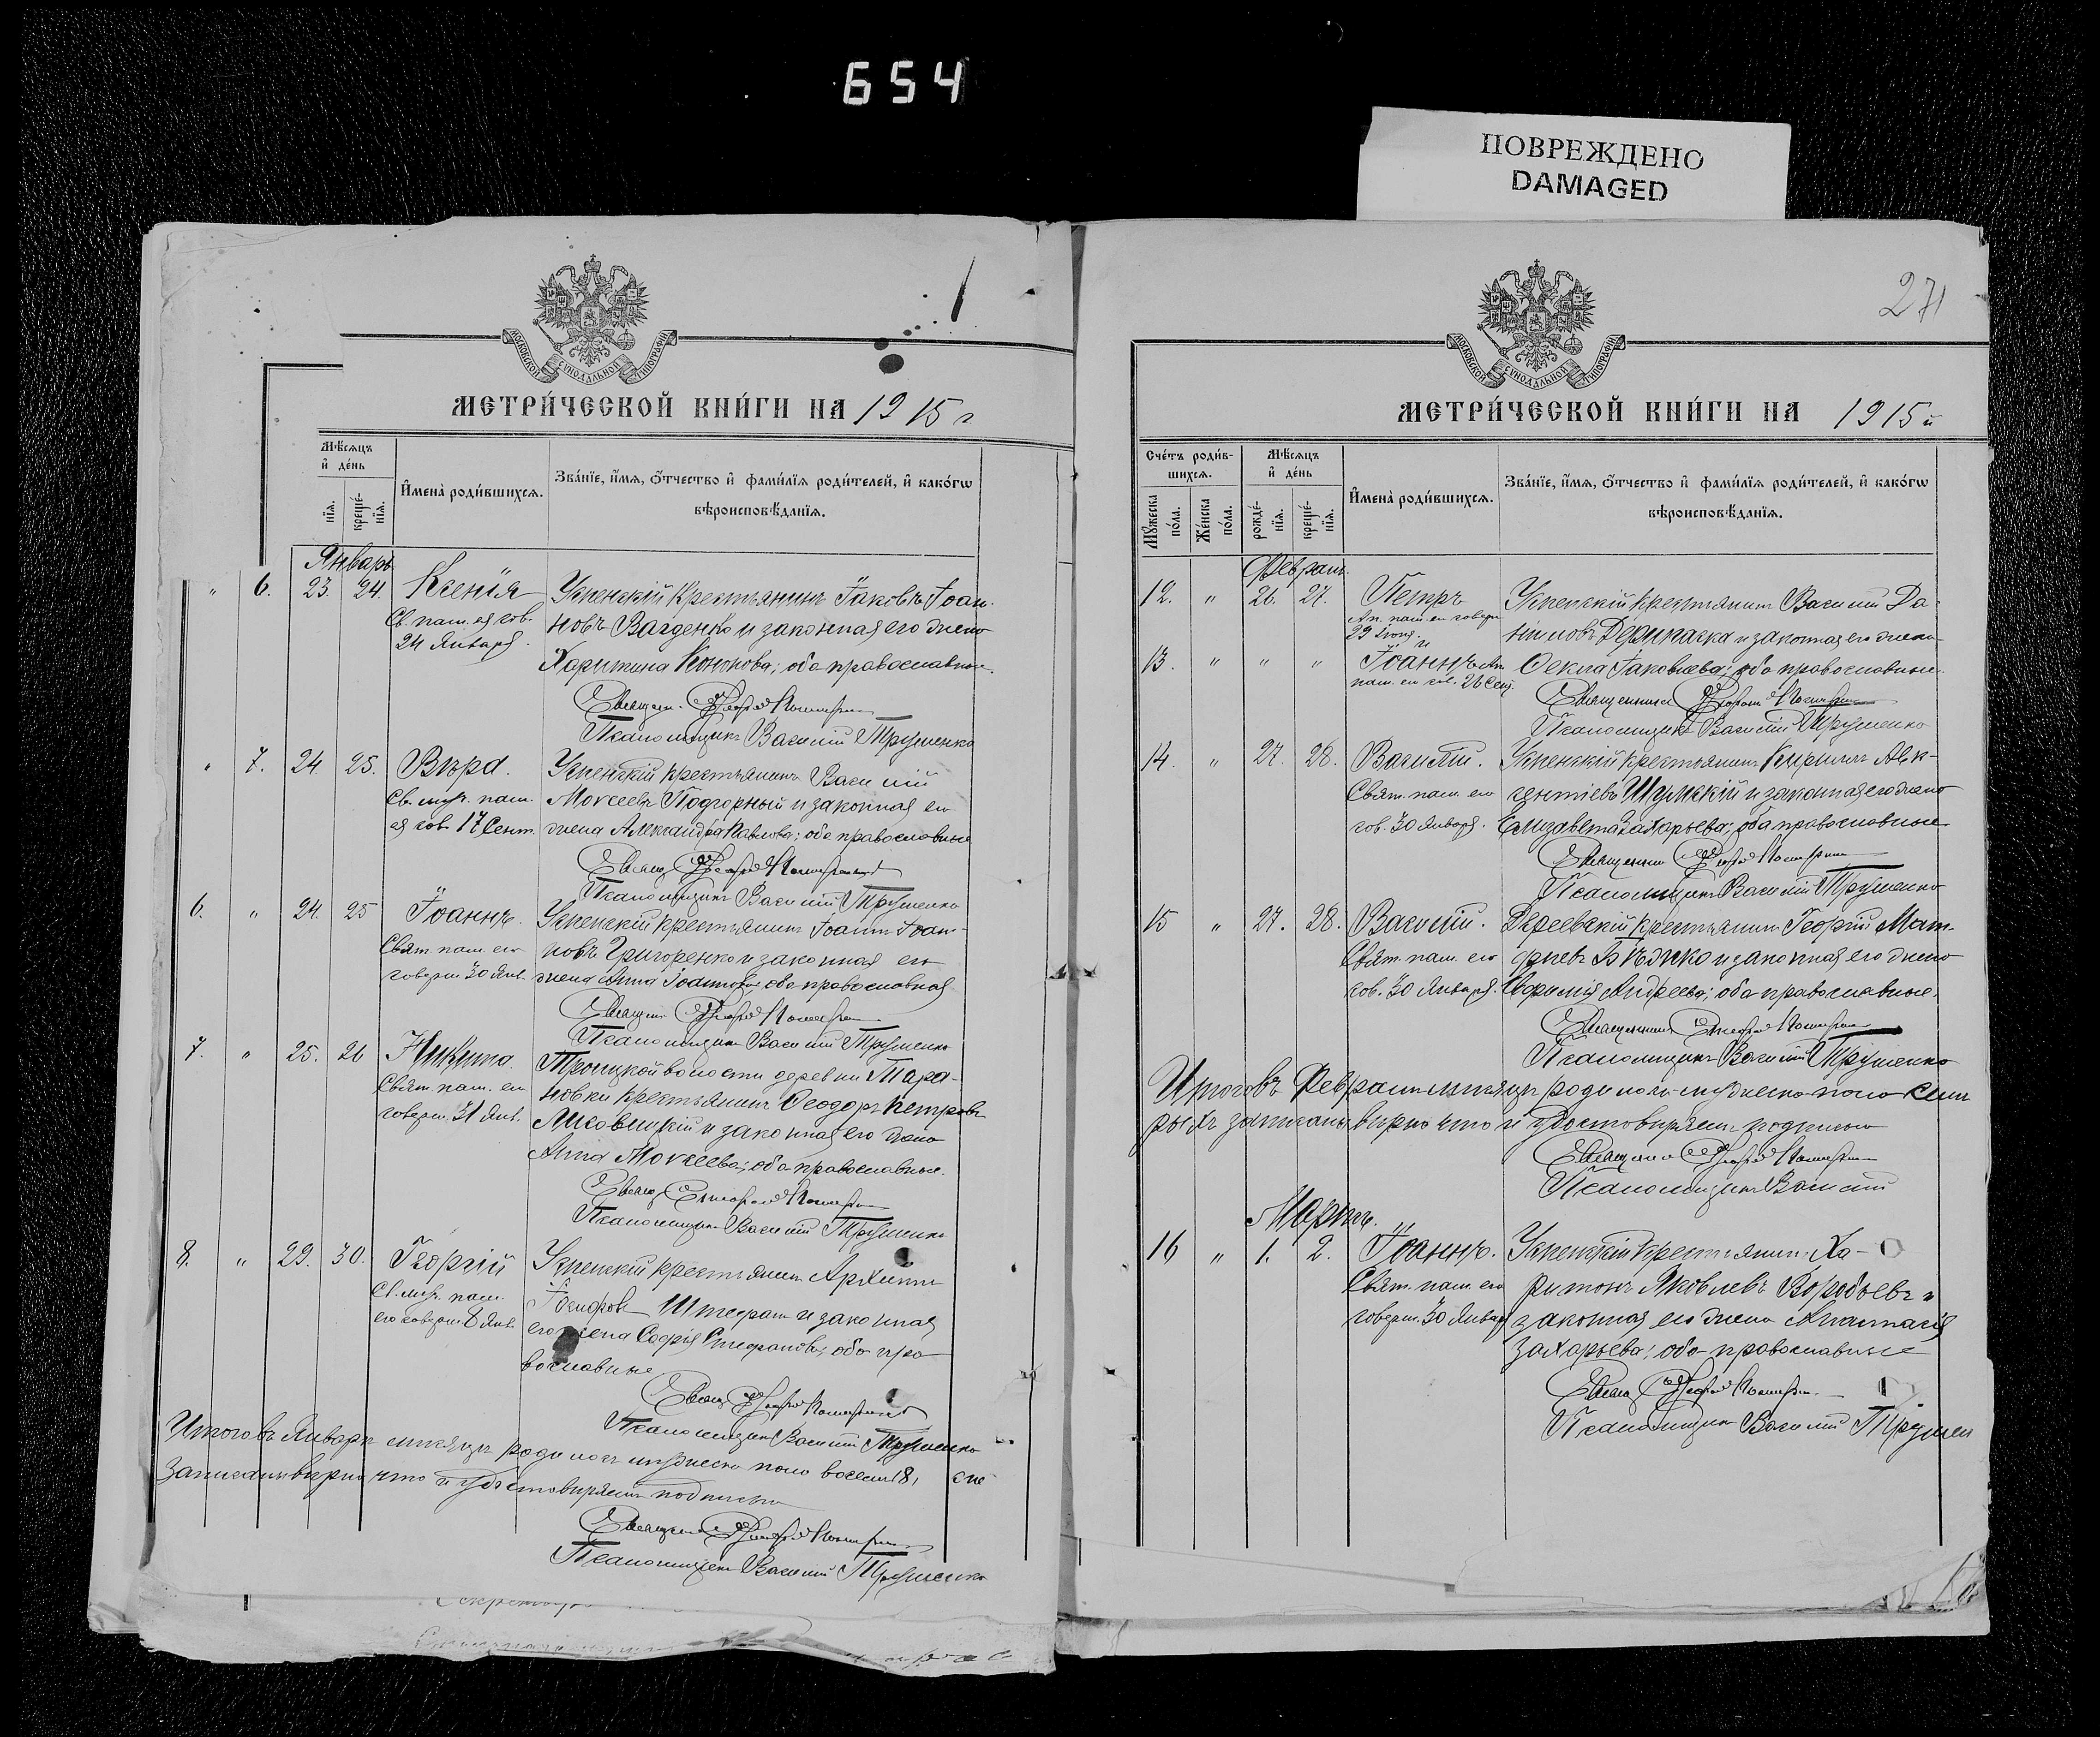 654
ПОВРЕЖДЕНО
DAMAGED
МОСКОВСКОЙ СѴНОДАЛЬНОЙ ТИПОГРАФІИ
МЕТРИ́ЧЕСКОЙ КНИ́ГИ НА 1915 г
Мѣсяцъ и де́нь
нїя.
креще́нїя.
Имена̀ роди́вшихся.
Зва́нїе, и́мя, о́тчество и фами́лїя роди́телей, и како́гω
вѣроисповѣ́данїя.
Январь
" 6. 23. 24. Ксенія
Св. пам. ея сов.
24 Января.
Успенскій крестьянинъ Іаковъ Іоан-
новъ Вагденко и законная его жена
Харитина Кононова; оба православные.
Священ.
Псаломщикъ Василій Трушенко
" 7. 24. 25. Вѣра.
Св. муч. пам.
ея сов. 17 Сент.
Успенскій крестьянинъ Василій
Моисеевъ Подгорный и законная его
жена Александра Павлова; оба православные
Свящ.
Псаломщикъ Василій Трушенко
6. " 24. 25 Іоаннъ.
Свят. пам. его
соверш. 30 Янв.
Успенскій крестьянинъ Іоаннъ Іоан-
новъ Григоренко и законная его
жена Анна Іоаннова; оба православная
Священ.
Псаломщикъ Василій Трушенко
7. " 25. 26 Никита.
Свят. пам. его
соверш. 31 Янв.
Троицкой волости деревни Тара-
новки крестьянинъ Ѳеодоръ Петровъ
Лисовицкій и законная его жена
Анна Моисеева; оба православные.
Свящ.
Псаломщикъ Василій Трушенко
8. " 29. 30. Георгій
Св. муч. пам.
его соверш. 8 Янв.
Успенскій крестьянинъ Архипъ
Іосифовъ и законная
его жена Софія Стефанова; оба пра-
вославные
Свящ.
Псаломщикъ Василій Трушенко
Итого въ Январѣ мѣсяцѣ родилось мужеска пола восемь 8,
записаны вѣрно что и удостовѣряемъ подписью
Священникъ
Псаломщикъ Василій Трушенко
271
МОСКОВСКОЙ СѴНОДАЛЬНОЙ ТИПОГРАФІИ
МЕТРИ́ЧЕСКОЙ КНИ́ГИ НА 1915 й
Сче́тъ роди́вшихся.
Мѣсяцъ и де́нь
Мꙋ́жеска по́ла.
Же́нска по́ла.
рожде́нїя.
креще́нїя.
Имена̀ роди́вшихся.
Зва́нїе, и́мя, о́тчество и фами́лїя роди́телей, и како́гω
вѣроисповѣ́данїя.
Февраль
12. " 26. 27. Петръ
Ап. пам. ею соверш
29 Іюня. и
13. " " " Іоаннъ Ап.
пам. ею сов. 26 Сент.
Успенскій крестьянинъ Василій Да-
ніиловъ и законная его жена
Ѳекла Іаковлева; оба православные.
Священникъ
Псаломщикъ Василій Трушенко
14. " 27. 28. Василій.
Свят. пам. его
сов. 30 Января.
Успенскій крестьянинъ Кириллъ Авк-
сентіевъ Шумскій и законная его жена
Елизавета Захарьева; оба православные.
Священникъ
Псаломщикъ Василій Трушенко
15 " 27. 28. Василій.
Свят. пам. его
сов. 30 Января.
крестьянинъ Георгій Мат-
фіевъ и законная его жена
Андреева; оба православные.
Священникъ
Псаломщикъ Василій Трушенко
Итого въ Февралѣ мѣсяцѣ родилось мужеска пола семь
записаны вѣрно что и удостовѣряемъ подписью
Священникъ
Псаломщикъ Василій
Мартъ.
16 " 1. 2. Іоаннъ.
Свят. пам. его
соверш. 30 Января
Успенскій крестьянинъ Ха-
ритонъ Яковлевъ Воробьевъ и
законная его жена Анастасія
Захарьева; оба православные
Свящ.
Псаломщикъ Василій Трушен